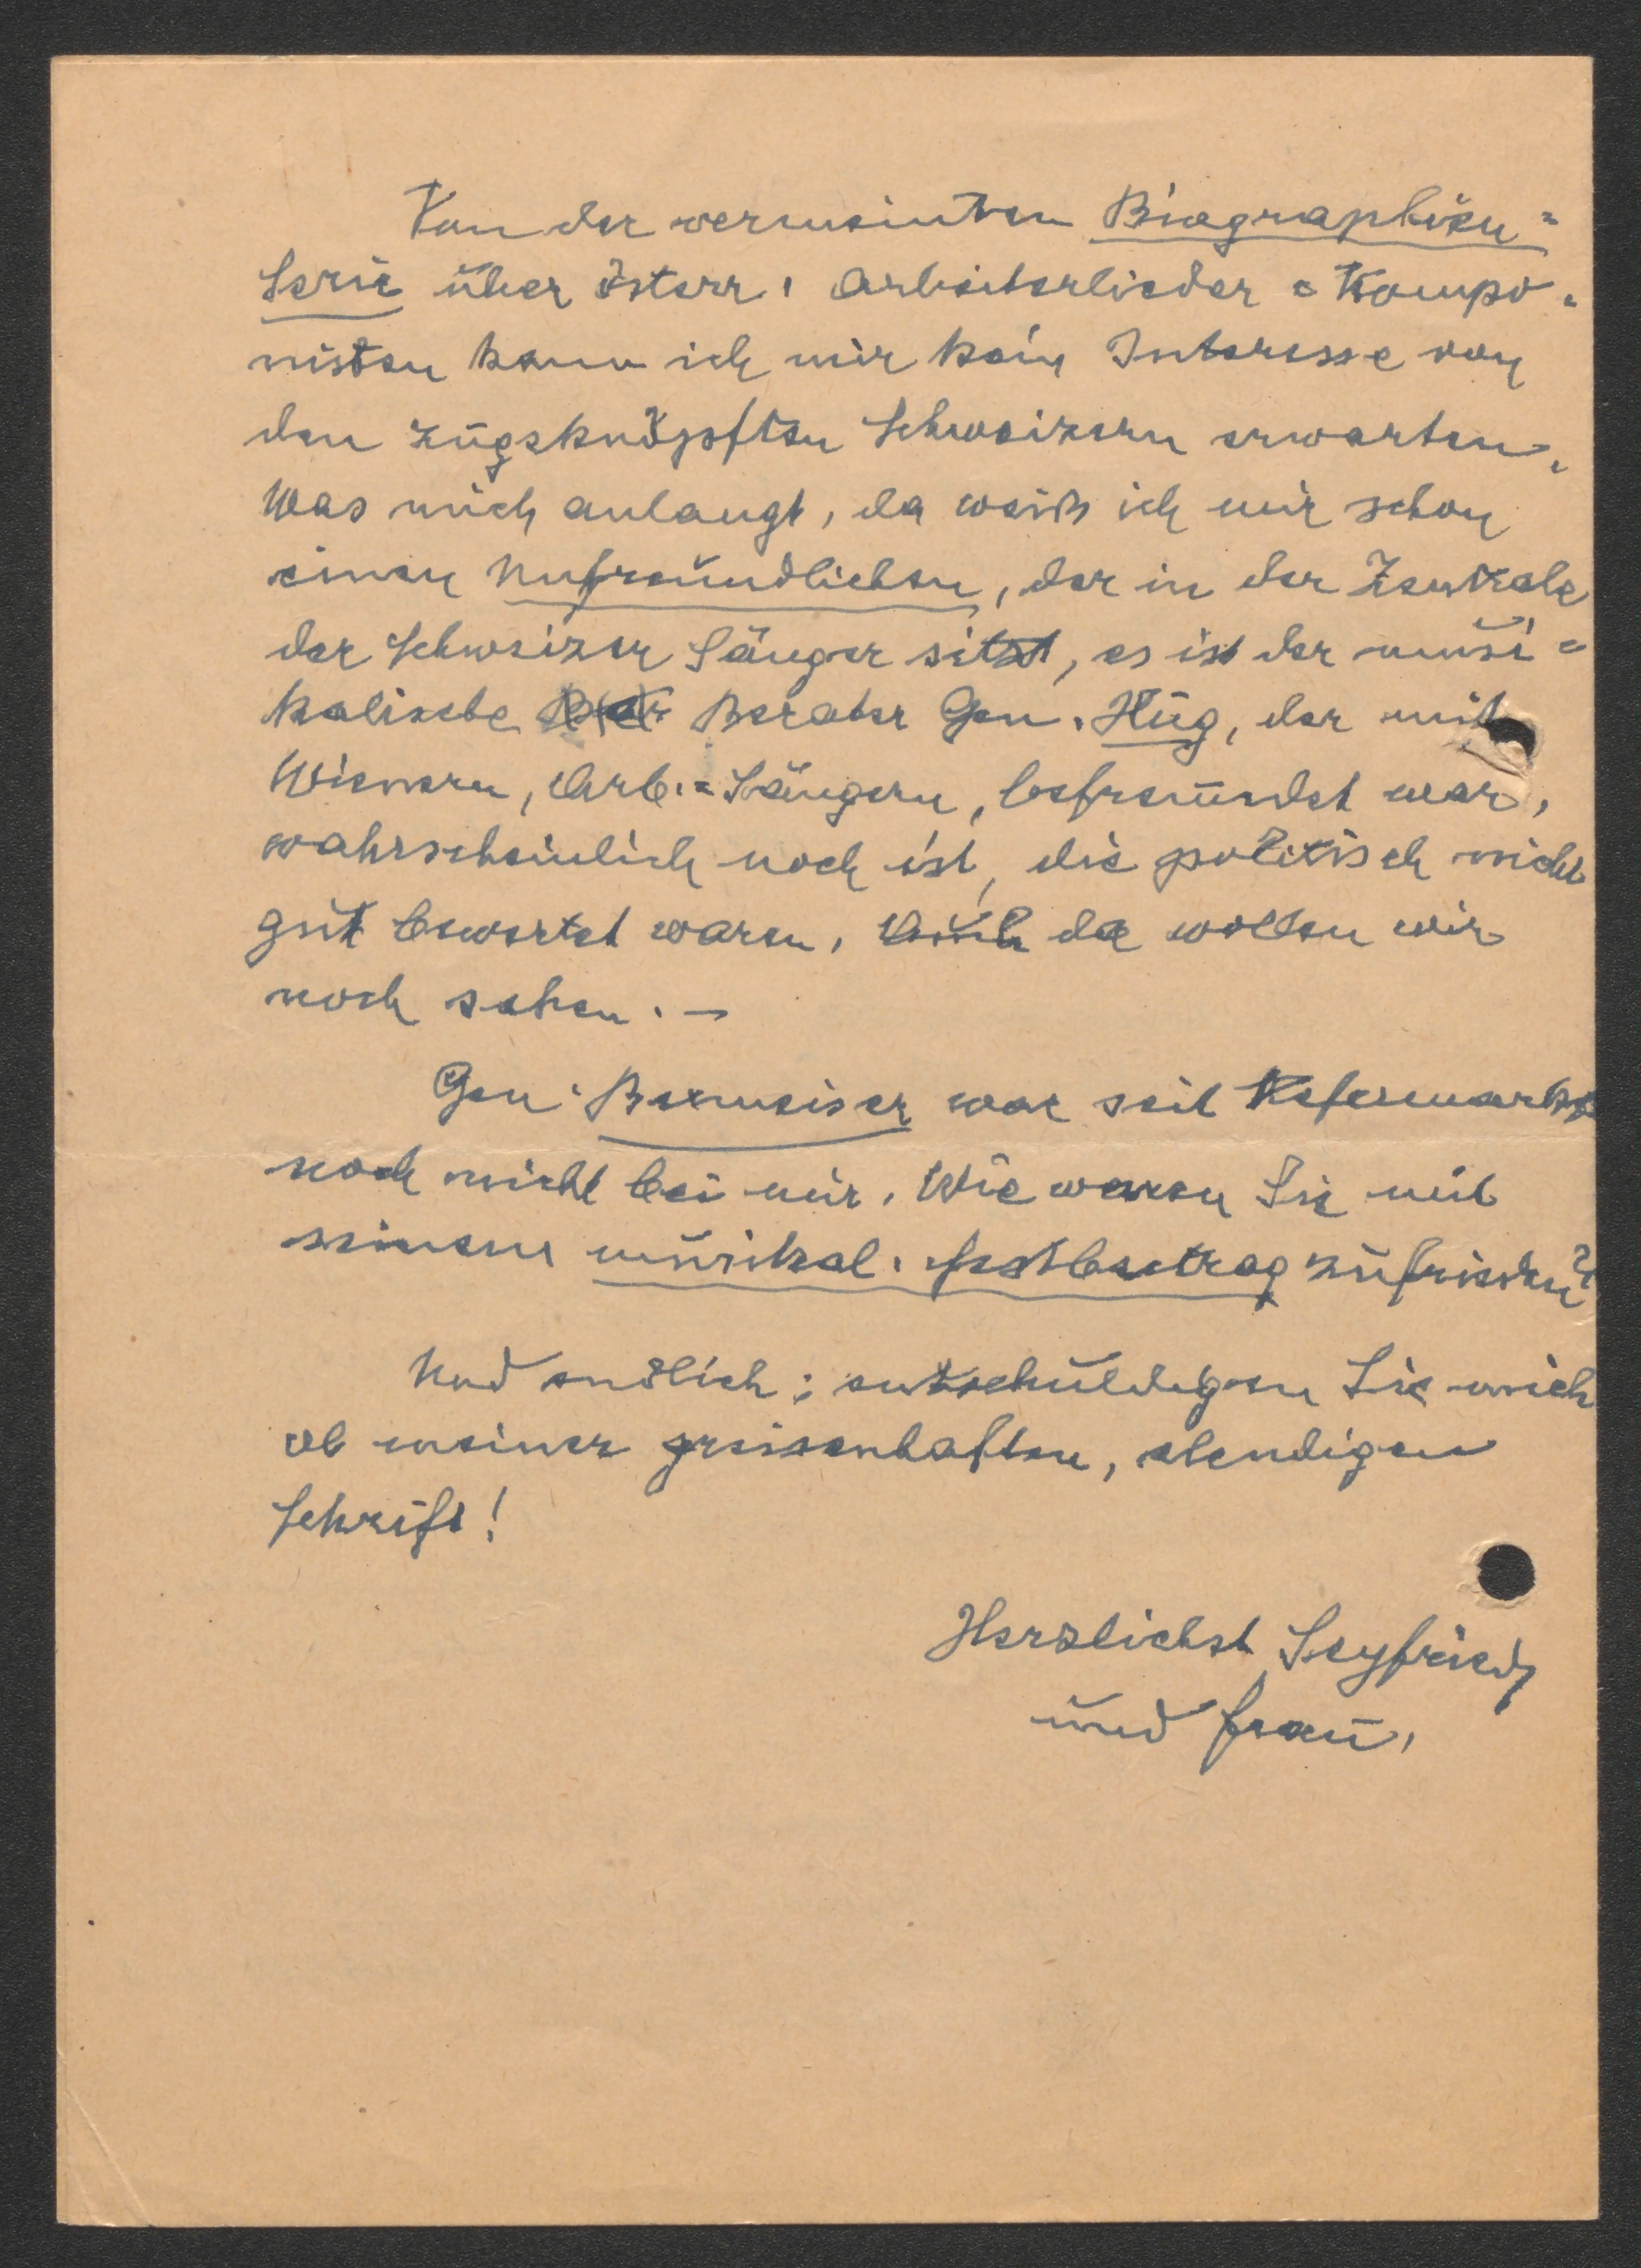 Von der vermeinten Biographien=
Serie über österr. Arbeiterlieder=Kompo=
nisten kann ich mir kein Interesse von
den zugeknöpften Schweizern erwarten.
Was mich anlangt, da weiß ich mir schon
einen Unfreundlichen, der in der Zentrale
der Schweizer Sänger sitzt, es ist der musi=
kalische Berater Gen. Hug, der mit
Wienern, Arb.=Sängern, befreundet war,
wahrscheinlich noch ist, die politisch nicht
gut bewertet waren. Auch da wollen wir
noch sehen. –
Gen. Bermeiser war seit Kefermarkt
noch nicht bei mir. Wie waren Sie mit
seinem musikal. Festbeitrag zufrieden?
Und endlich: entschuldigen Sie mich
ob meiner greisenhaften, elendigen
Schrift!
Herzlichst Seyfried
und Frau.